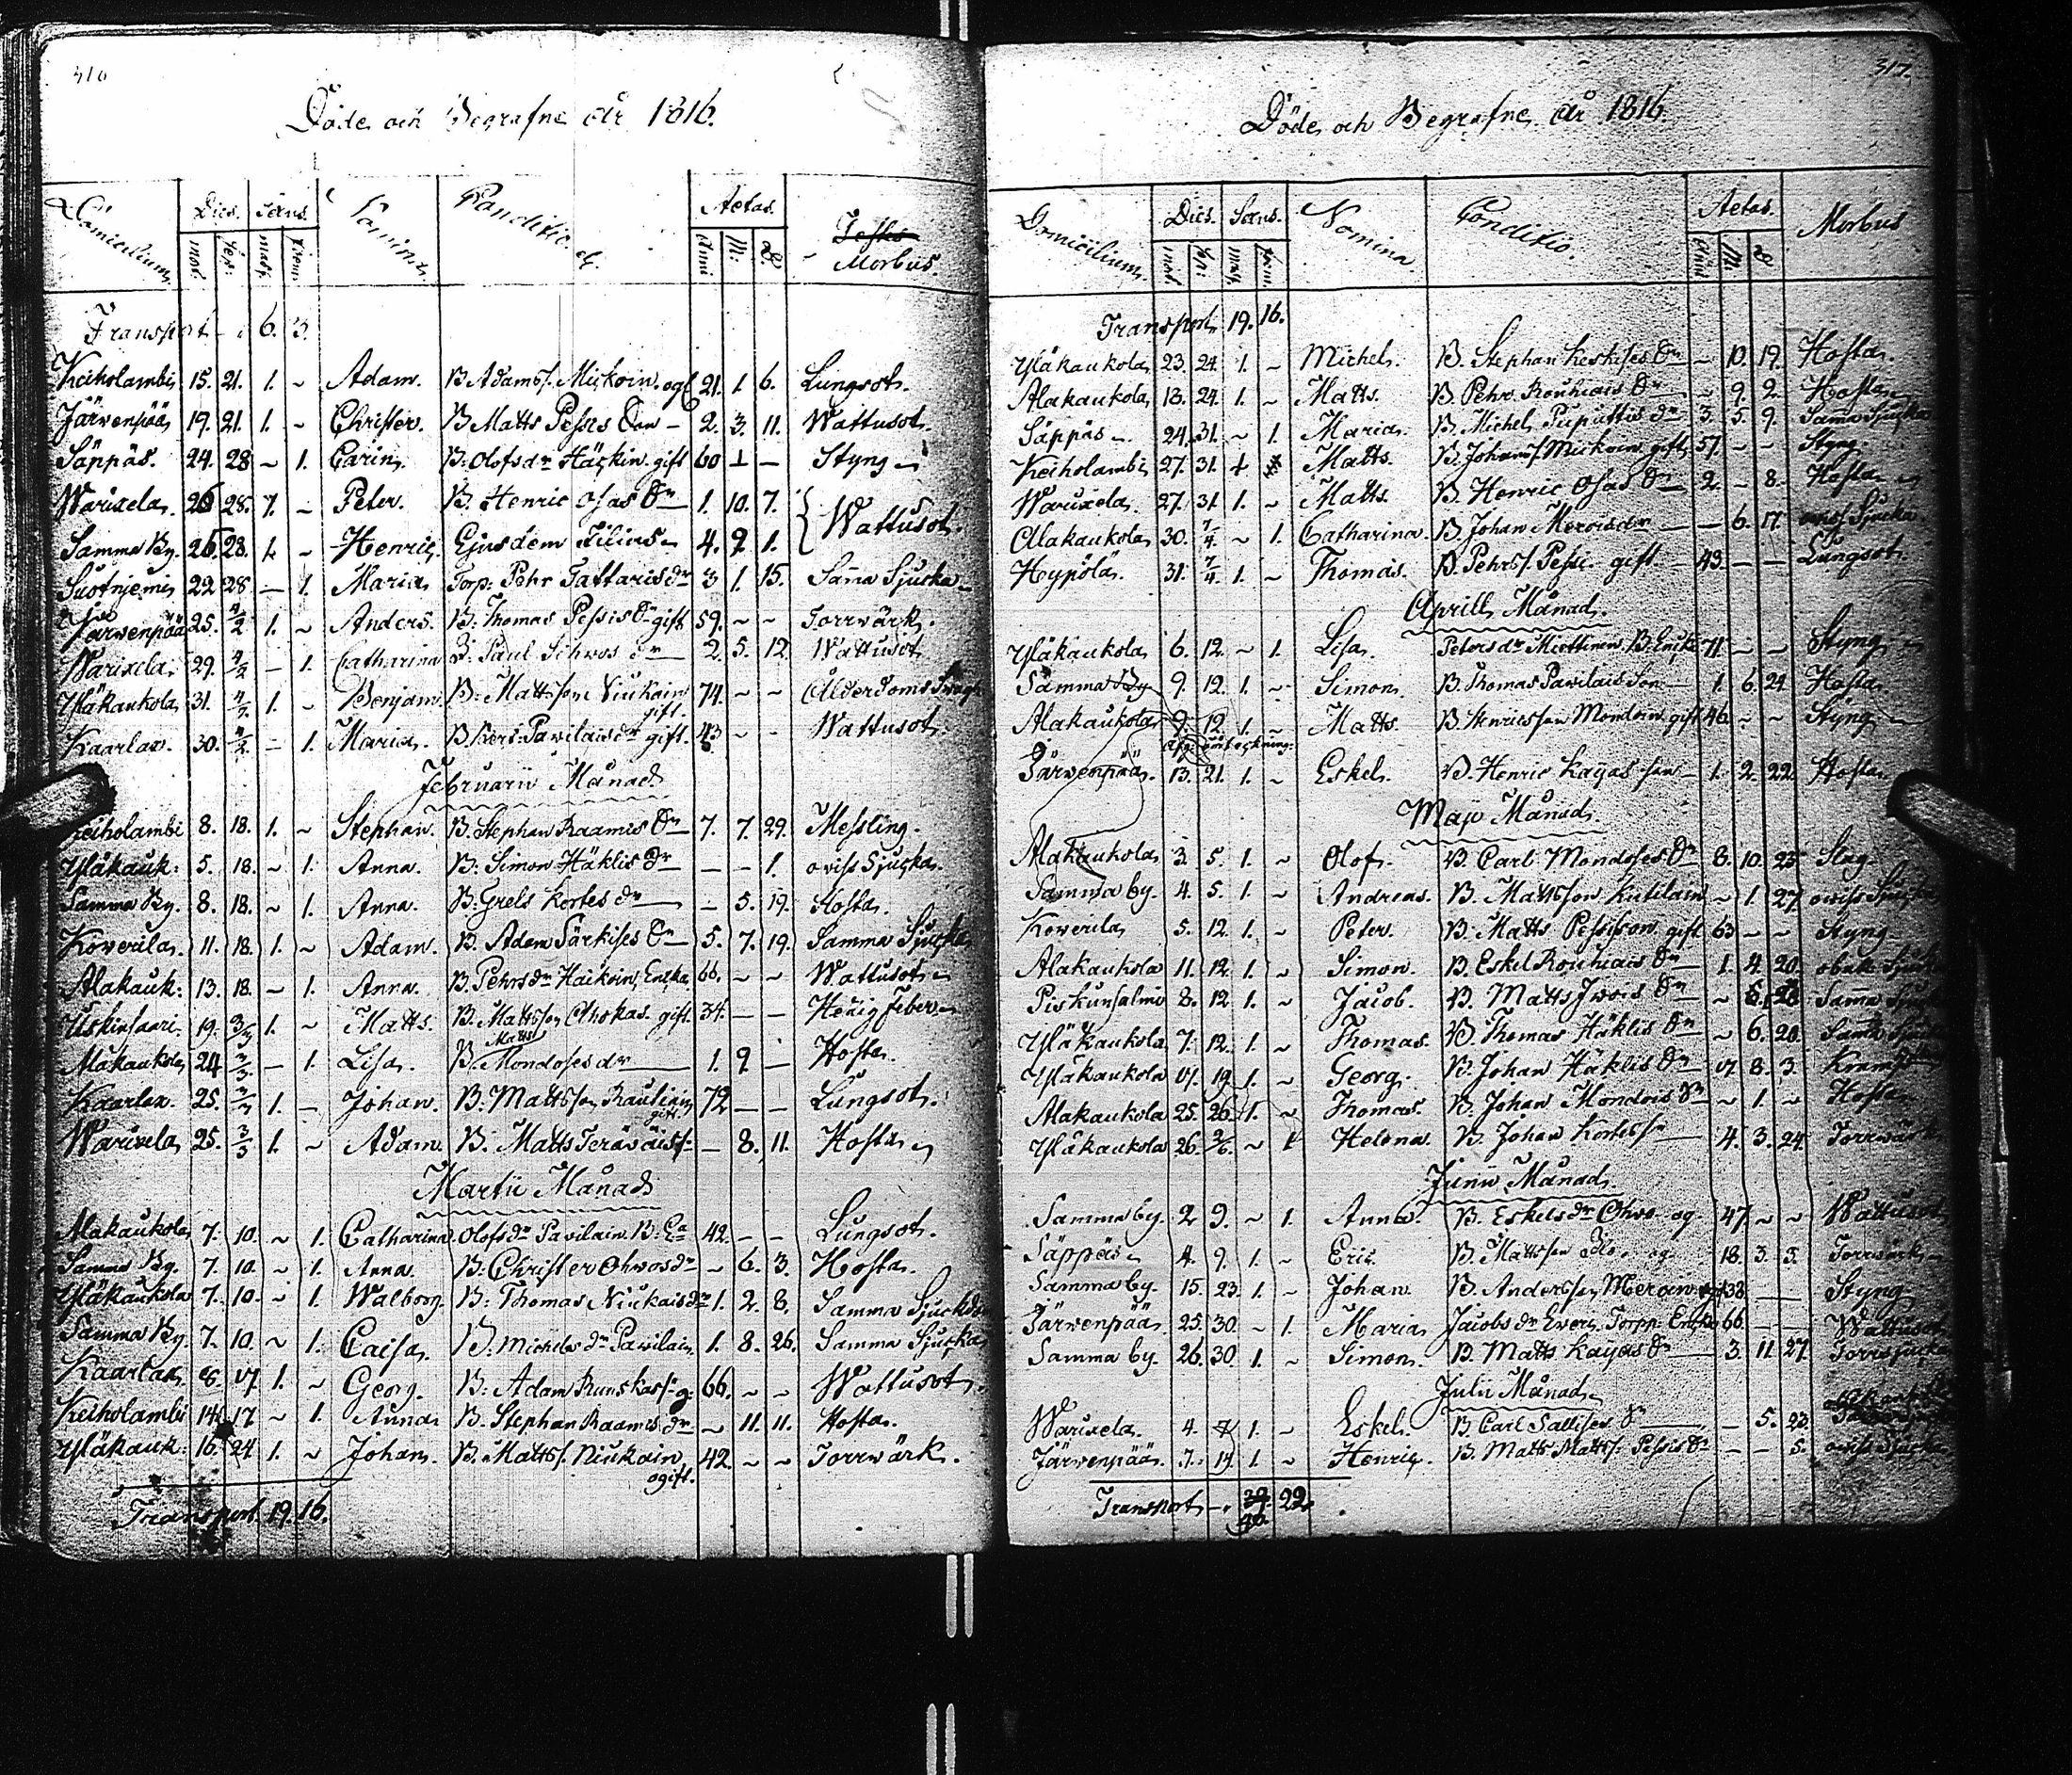 316
Döde och Begrafne år 1816.
Domicilium. Dies. Sexus. Nomina. Conditio. Aetas. Morbus.
mort. sep: masc. foem. Anni M: D.
Transport 6. 3.
Keiholambi 15. 21. 1. ~ Adam. B. Adamss. Mickoin ogf. 21. 1. 6. Lungsot.
Järvenpää 19. 21. 1. ~ Christer. B. Matts Pessis Son - 2. 3. 11. Wattusot.
Säppäs. 24. 28 ~ 1. Carin. B. Olofsdr Häckin. gift 60 - - Styng
Warixela. 26 28. 1. ~ Peter. B. Henric Osas Sn 1. 10. 7. Wattusot.
Samma By. 26. 28. 1. ~ Henric. Ejusdem Filius 4. 9. 1.
Suotniemi 22 28 - 1. Maria Torp: Pehr Tattaris dr 3 1. 15. Sama Sjucka
Järvenpää 25. 4/2 1. ~ Anders. B. Thomas Pessis Sn gift 59. ~ ~ Torrvärk.
Warixela. 29. 4/2 - 1. Catharina B: Paul Schvos dr 2. 5. 12. Wattusot
Yläkaukola 31. 4/2 1. ~ Benjam. B. Mattsson Niukain gift. 74. ~ ~ Ålderdoms
Kaarlax. 30. 4/2 - 1. Maria. B. Pavilais dr gift. 43 ~ ~ Wattusot
Februarii Månad
Keiholambi 8. 18. 1. ~ Stephan. B. Stephan Raamis Sn 7. 7. 29. Messling.
Yläkauk: 5. 18. ~ 1. Anna. B. Simon Häklis dr - - 1. oviss Sjucka.
Samma By. 8. 18. ~ 1. Anna. B. Grels Kortes dr - 5. 19. Hosta.
Koverila. 11. 18. 1. ~ Adam. B. Adam Särkises Sn 5. 7. 19. Samma Sjucka
Alakauk: 13. 18. - 1. Anna. B. Pehrsdr Haikoin, Encka 66. ~ ~ Wattusot
Uskinsaari. 19. 3/3 1. ~ Matts. B. Mattsson Ahokas gift. 34. - - Hetsig feber
Alakaukola 24 3/3 - 1. Lisa. B. Matts Mondoses dr 1. 9. - Hosta.
Kaarlax. 25. 3/3 1. - Johan. B. Mattsson Rautiain gift. 72 - - Lungsot.
Warixela 25. 3/3 1. ~ Adam. B. Matts Teräväis s: - 8. 11. Hosta
Martii Månad
Alakaukola 7. 10. ~ 1. Catharina Olofsdr Pavilain. B: Ea 42. - - Lungsot.
Samma By. 7. 10. ~ 1. Anna. B. Christer Ohvos dr ~ 6. 3. Hosta.
Yläkaukola 7. 10. ~ 1. Walborg. B: Thomas Niukais dr 1. 2. 8. Samma Sjucka
Samma By. 7. 10. ~ 1. Caisa. B. Michels dr Pavilain 1. 8. 26. Samma Sjucka
Kaarlax 8. 17. 1. ~ Georg. B: Adam Runskas s: g: 66. ~ ~ Wattusot
Keiholambi 14. 17 ~ 1. Anna B. Stephan Raamis dr ~ 11. 11. Hosta.
Yläkauk: 16. 24 1. ~ Johan. B. Mattss. Niukain ogift. 42. ~ ~ Torrwärk.
Transport. 19. 16.
317.
Döde och Begrafne År 1816
Domicilium. Dies. Sexus. Nomina. Conditio. Aetas. Morbus
mort. sep: masc. foem. Anni M. D
Transport 19. 16.
Yläkaukola 23. 24. 1. ~ Michel. B. Stephan Keskises Sn ~ 10. 19. Hosta
Alakaukola 13. 24. 1. ~ Matts. B. Pehr Rouhiais Sn ~ 9. 2. Hosta
Säppäs 24. 31. ~ 1. Maria. B. Michel Puputtis dr 3. 5. 9. Samma Sjucka
Keiholambi 27. 31. 1 Matts. B. Johanss. Mickoin gift 57. - - Styng
Warixela. 27. 31. 1. ~ Matts. B. Henric Osas Sn 2. - 8. Hosta
Alakaukola 30. 7/4 ~ 1. Catharina. B. Johan Merois dr - 6. 17. oviss Sjucka
Heypölä. 31. 7/4. 1. ~ Thomas. B. Pehrss. Pessi. gift 43. - - Lungsot.
Aprill Månad.
Yläkaukola 6. 12. ~ 1. Lisa. Petersdr Miettinen B. Encka 71 - - Styng
Samma By 9. 12. 1. ~ Simon. B. Thomas Pavilais Son 1. 6. 24. Hosta
Alakaukola 9. 12. 1. ~ Matts. B. Henricsson Mondoin gift 46. ~ ~ Styng
Järvenpää. 13. 21. 1. ~ Eskel. B. Henric Kayas son 1. 2. 22. Hosta
Maji Månad.
Alakaukola 3. 5. 1. ~ Olof. B. Carl Mondoses Sn 8. 10. 25. Slag.
Samma by. 4. 5. 1. ~ Andreas. B. Mattsson Kutilain ~ 1. 27. oviss
Koverila 5. 12. 1. ~ Peter. B. Matts Pessisson gift 63 ~ ~ Styng
Alakaukola 11. 12. 1. ~ Simon. B. Eskel Rouhiais Sn 1. 4. 20.
Piskunsalmi 8. 12. 1. ~ Jacob. B. Matts Ivois Sn Samma
Yläkaukola 7. 12. 1. ~ Thomas. B. Thomas Häklis Sn ~ 6. 20. Samma
Yläkaukola 17. 19. 1. ~ Georg. B. Johan Häklis Sn 17 8. 3.
Alakaukola 25. 26. 1. ~ Thomas. B. Johan Mondois Sn ~ 1. ~ Hosta
Yläkaukola 26. 2/6. ~ 1 Helena. B. Johan Kortes 4. 3. 24. Torrwärk
Junii Månad.
Samma by. 2 9. ~ 1. Anna. B. Eskelsdr Ohvo og 47. ~ ~ Wattusot
Säppäs 4. 9. 1. ~ Eric. B. Mattsson og 18. 3. 3. Torrwärk
Samma by. 15. 23. 1. ~ Johan. B. Andersson Meroin 38. Styng
Järvenpää 25. 30. ~ 1. Maria Jacobsdr Torp: Encka 66. - - Wattusot
Samma by. 26. 30 1. ~ Simon. B. Matts Kayas Sn 3. 11. 27. Torrsjucka
Julii Månad
Warixela. 4. 7 1. ~ Eskel. B. Carl Sallises Sn - 5. 23.
Järvenpää 7. 14 1. ~ Henric. B. Matts Mattss. Pessis Sn - - 5. oviss Sjucka
Transport 22.